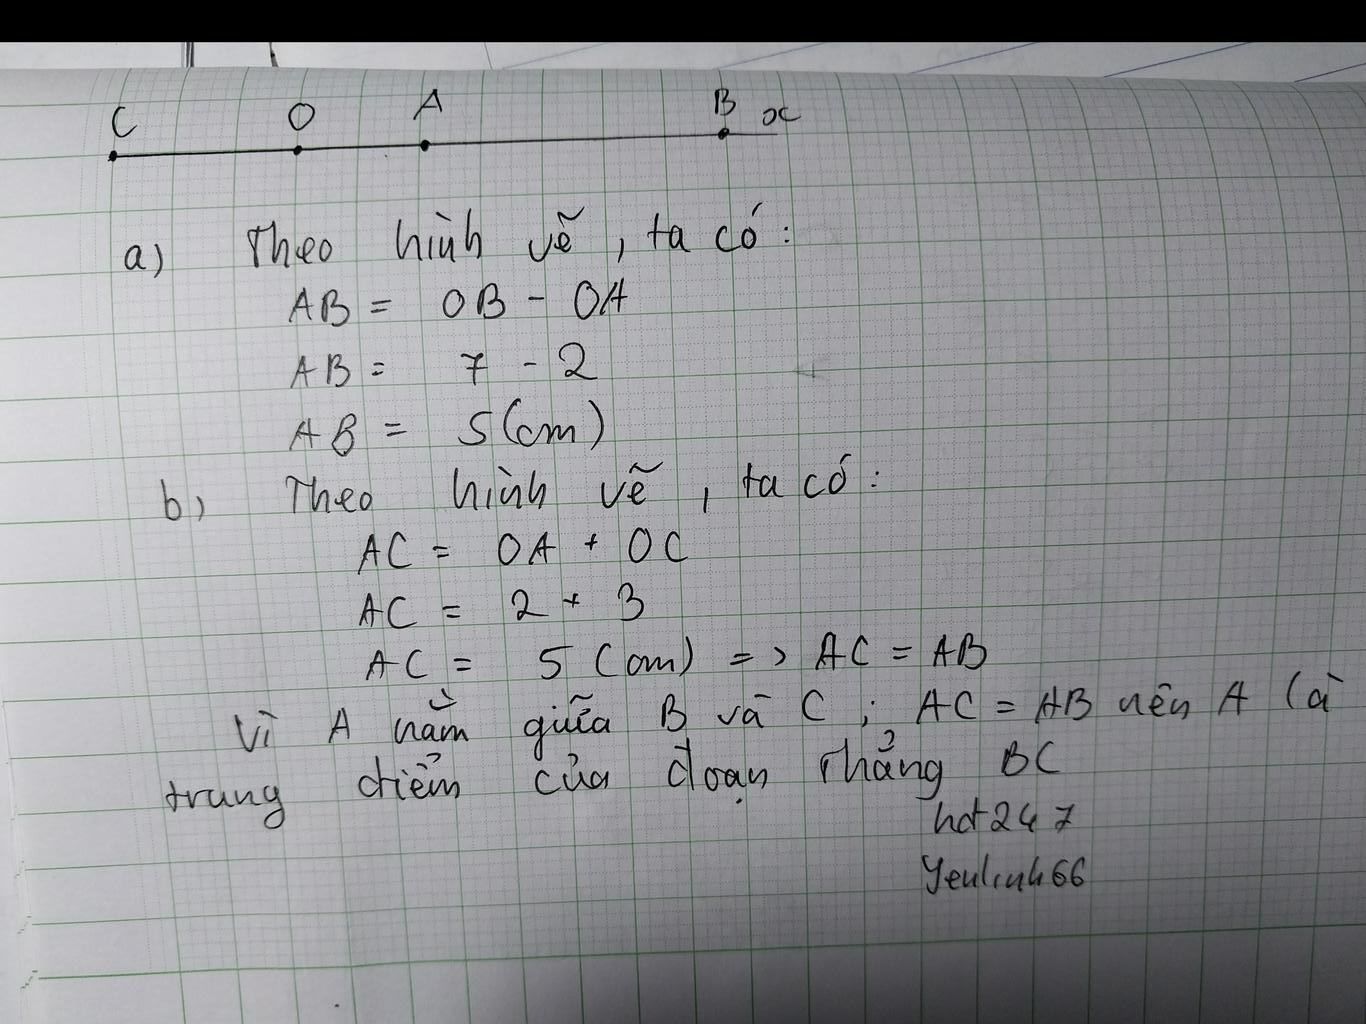 C O A B x
a) Theo hình vẽ, ta có:
AB = OB - OA
AB = 7 - 2
AB = 5(cm)
b, Theo hình vẽ, ta có:
AC = OA + OC
AC = 2 + 3
AC = 5 (cm) => AC = AB
Vì A nằm giữa B và C ; AC = AB nên A là
trung điểm của đoạn thẳng BC
hdt247
Yenlinh66